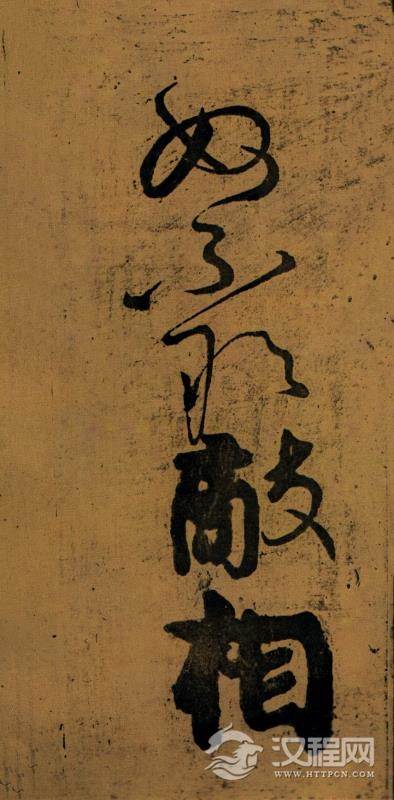 不敢敵相
汉程网
WWW.HTTPCN.COM